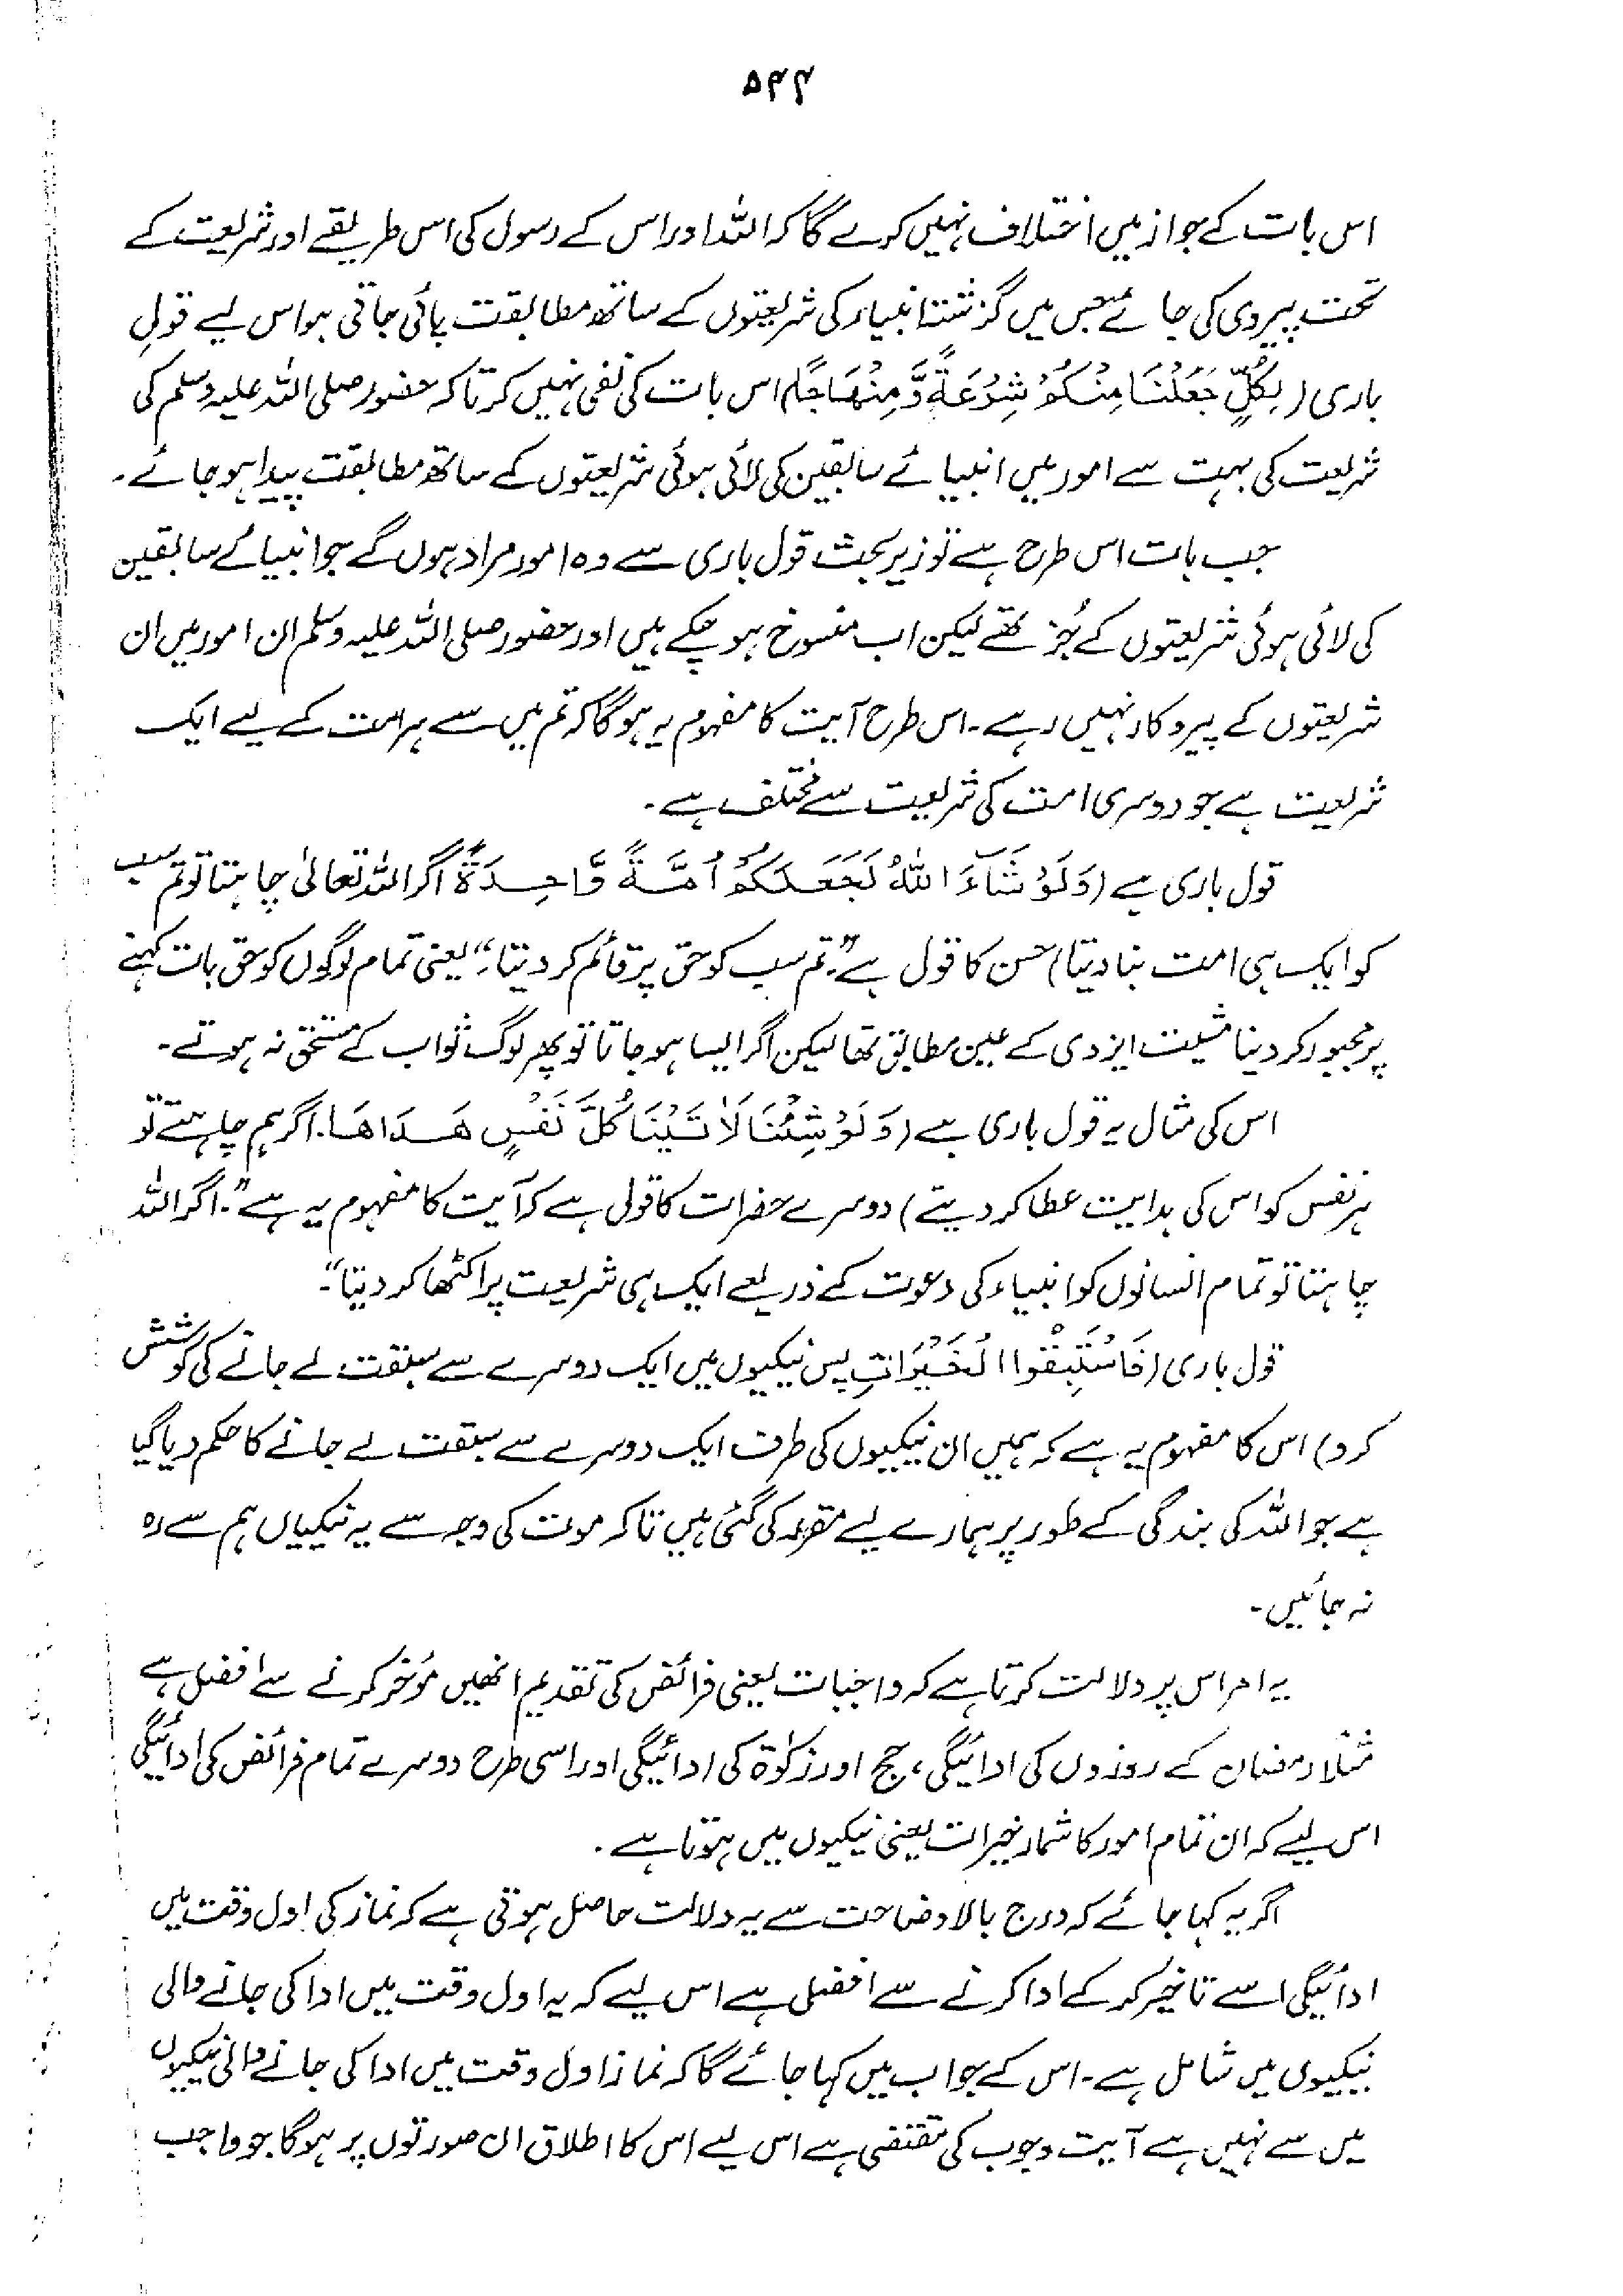 ۵۴۴
اس بات کے جواز میں اختلاف نہیں کرے گا کہ اللہ اور اس کے رسول کی اس طریقے اور شریعت کے
تحت پیروی کی جائے جس میں گزشتہ انبیاء کی شریعتوں کے ساتھ مطابقت پائی جاتی ہو اس لیے قولِ
باری (لِکُلٍّ جَعَلْنَا مِنْکُمْ شِرْعَةً وَّمِنْهَاجًا) اس بات کی نفی نہیں کرتا کہ حضور صلی اللہ علیہ وسلم کی
شریعت کی بہت سے امور میں انبیائے سابقین کی لائی ہوئی شریعتوں کے ساتھ مطابقت پیدا ہو جائے۔
جب بات اس طرح ہے تو زیر بحث قول باری سے وہ امور مراد ہوں گے جو انبیائے سابقین
کی لائی ہوئی شریعتوں کے جُز تھے لیکن اب منسوخ ہو چکے ہیں اور حضور صلی اللہ علیہ وسلم ان امور میں ان
شریعتوں کے پیروکار نہیں رہے۔ اس طرح آیت کا مفہوم یہ ہوگا کہ تم میں سے ہر امت کے لیے ایک
شریعت ہے جو دوسری امت کی شریعت سے مختلف ہے۔
قول باری ہے (وَلَوْ شَآءَ اللّٰهُ لَجَعَلَکُمْ اُمَّةً وَّاحِدَةً اگر اللہ تعالیٰ چاہتا تو تم سب
کو ایک ہی امت بنا دیتا) حسن کا قول ہے "تم سب کو حق پر قائم کر دیتا۔" یعنی تمام لوگوں کو حق بات کہنے
پر مجبور کر دینا مشیت ایزدی کے عین مطابق تھا لیکن اگر ایسا ہو جاتا تو پھر لوگ ثواب کے مستحق نہ ہوتے۔
اس کی مثال یہ قول باری ہے (وَلَوْ شِئْنَا لَاٰتَیْنَا کُلَّ نَفْسٍ هَدَاهَا۔ اگر ہم چاہتے تو
ہر نفس کو اس کی ہدایت عطا کر دیتے) دوسرے حضرات کا قول ہے کہ آیت کا مفہوم یہ ہے "۔ اگر اللہ
چاہتا تو تمام انسانوں کو انبیاء کی دعوت کے ذریعے ایک ہی شریعت پر اکٹھا کر دیتا"۔
قول باری (فَاسْتَبِقُوا الْخَیْرَاتِ پس نیکیوں میں ایک دوسرے سے سبقت لے جانے کی کوشش
کرو) اس کا مفہوم یہ ہے کہ ہمیں ان نیکیوں کی طرف ایک دوسرے سے سبقت لے جانے کا حکم دیا گیا
ہے جو اللہ کی بندگی کے طور پر ہمارے لیے مقرر کی گئی ہیں تاکہ موت کی وجہ سے یہ نیکیاں ہم سے رہ
نہ جائیں۔
یہ امر اس پر دلالت کرتا ہے کہ واجبات یعنی فرائض کی تقدیم انھیں مؤخر کرنے سے افضل ہے
مثلاً رمضان کے روزوں کی ادائیگی، حج اور زکوٰۃ کی ادائیگی اور اسی طرح دوسرے تمام فرائض کی ادائیگی
اس لیے کہ ان تمام امور کا شمار خیرات یعنی نیکیوں میں ہوتا ہے۔
اگر یہ کہا جائے کہ درج بالا وضاحت سے یہ دلالت حاصل ہوتی ہے کہ نماز کی اول وقت میں
ادائیگی اسے تاخیر کر کے ادا کرنے سے افضل ہے اس لیے کہ یہ اول وقت میں ادا کی جانے والی
نیکیوں میں شامل ہے۔ اس کے جواب میں کہا جائے گا کہ نماز اول وقت میں ادا کی جانے والی نیکیوں
میں سے نہیں ہے آیت وجوب کی مقتضی ہے اس لیے اس کا اطلاق ان صورتوں پر ہوگا جو واجب